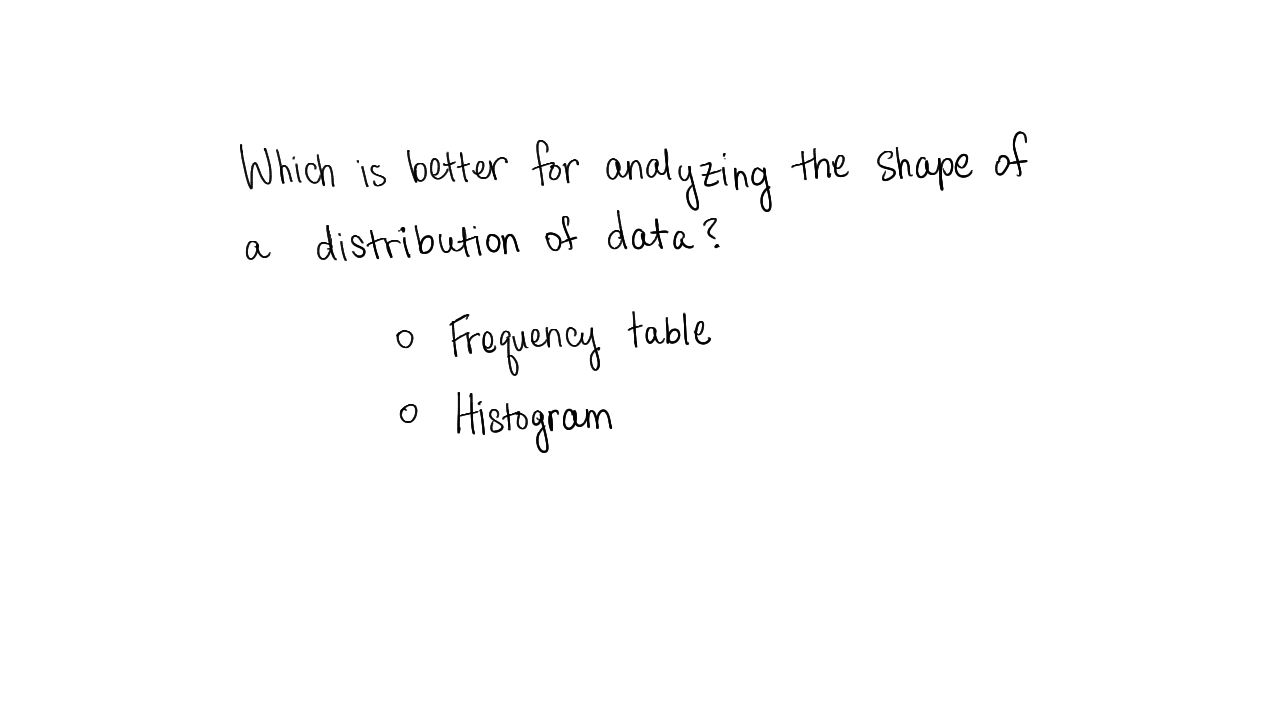 Which is better for analyzing the shape of
a distribution of data?
○ Frequency table
○ Histogram